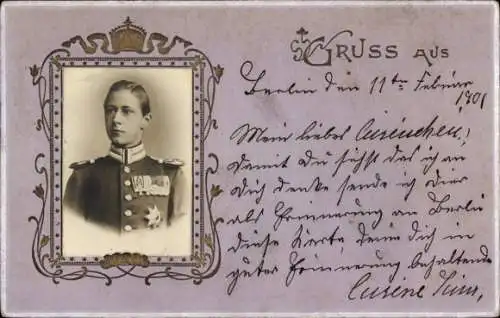 GRUSS AUS
Berlin den 11ten Februar
1901
Mein liebes
Damit Du siehst das ich an
Dich denke sende ich Dier
als Erinnerung an Berlin
diese Karte, deine Dich in
guter Erinnerung behaltende